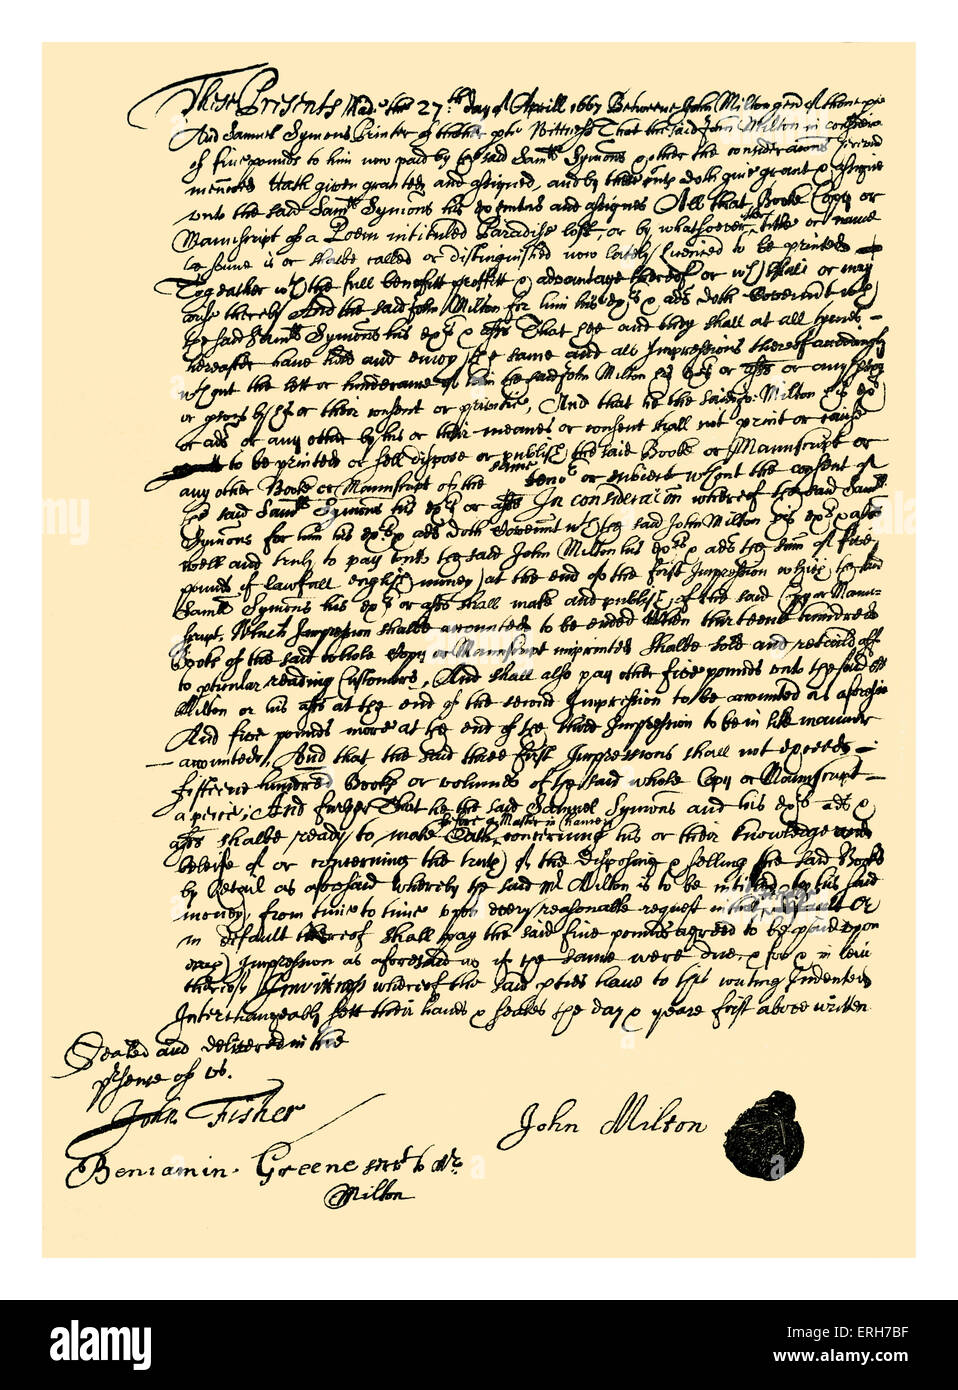 These Presents Made the 27th day of Aprill 1667 Betweene John Milton gent of thone ptie
And Samuel Symons Printer of thother ptie Wittness That the said John Milton in consideracon
of five pounds to him now paid by the said Samll Symons & other the consideracons herein
menconed Hath given granted and assigned, and by these pnts doth give grant & assigne
unto the said Samll Symons his executors and assignes All that Booke Copy or
Manuscript of a Poem intituled Paradise lost, or by whatsoever other title or name
the same is or shalbe called or distinguished now lately Licensed to be printed
Together wth the full benefitt proffitt & advantage thereof or wch shall or may
arise thereby And the said John Milton for him his exrs & adrs doth Covenant wth
the said Samll Symons his exrs & asss That hee and they shall at all tymes
hereafter have hold and enjoy the same and all Impressions thereof accordingly
wthout the lett or hinderance of him the said John Milton his exrs or asss or any pson
or psons by his or their consent or privitie, And that he the said Jo: Milton his exrs
or adrs or any other by his or their meanes or consent shall not print or cause
to be printed or sell dispose or publish the said Booke or Manuscript or
any other Booke or Manuscript of the same tenor or subject wthout the consent of
the said Samll Symons his exrs or asss In consideracon whereof the said Samll
Symons for him his exrs & adrs doth Covennt wth the said John Milton his exrs & asss
well and truly to pay unto the said John Milton his exrs & adrs the sum of five
pounds of lawfull english money at the end of the first Impression which the said
Samll Symons his exrs or asss shall make and publish of the said Copy or Manu-
script, Which Impression shalbe accounted to be ended when thirteene hundred
Books of the said whole Copy or Manuscript imprinted shalbe sold and retaild off
to pticular reading Customers, And shall also pay other five pounds unto the said Mr
Milton or his asss at the end of the second Impression to be accounted as aforesaid
And five pounds more at the end of the third Impression to be in like manner
accounted, And that the said three first Impressions shall not exceed
fifteene hundred Books or volumes of the said whole Copy or Manuscript
a peice, And further That he the said Samuel Symons and his exrs adrs &
asss shalbe ready to make Oath before a Master in Chancery concerning his or their knowledge and
beleife of or concerning the truth of the disposing & selling the said Books
by Retail as aforesaid whereby the said Mr Milton is to be intitled to his said
money from time to time upon every reasonable request in that behalfe Or
in default thereof shall pay the said five pounds agreed to be paid upon
each Impression as aforesaid as if the same were due & for & in lieu
thereof In wittness whereof the said pties have to this writing Indented
Interchangeably sett their hands & seales the day & yeare first above written
Sealed and delivered in the
presence of us.
John Fisher
John Milton
Benjamin Greene servt to Mr
Milton
alamy
Image ID: ERH7BF
www.alamy.com